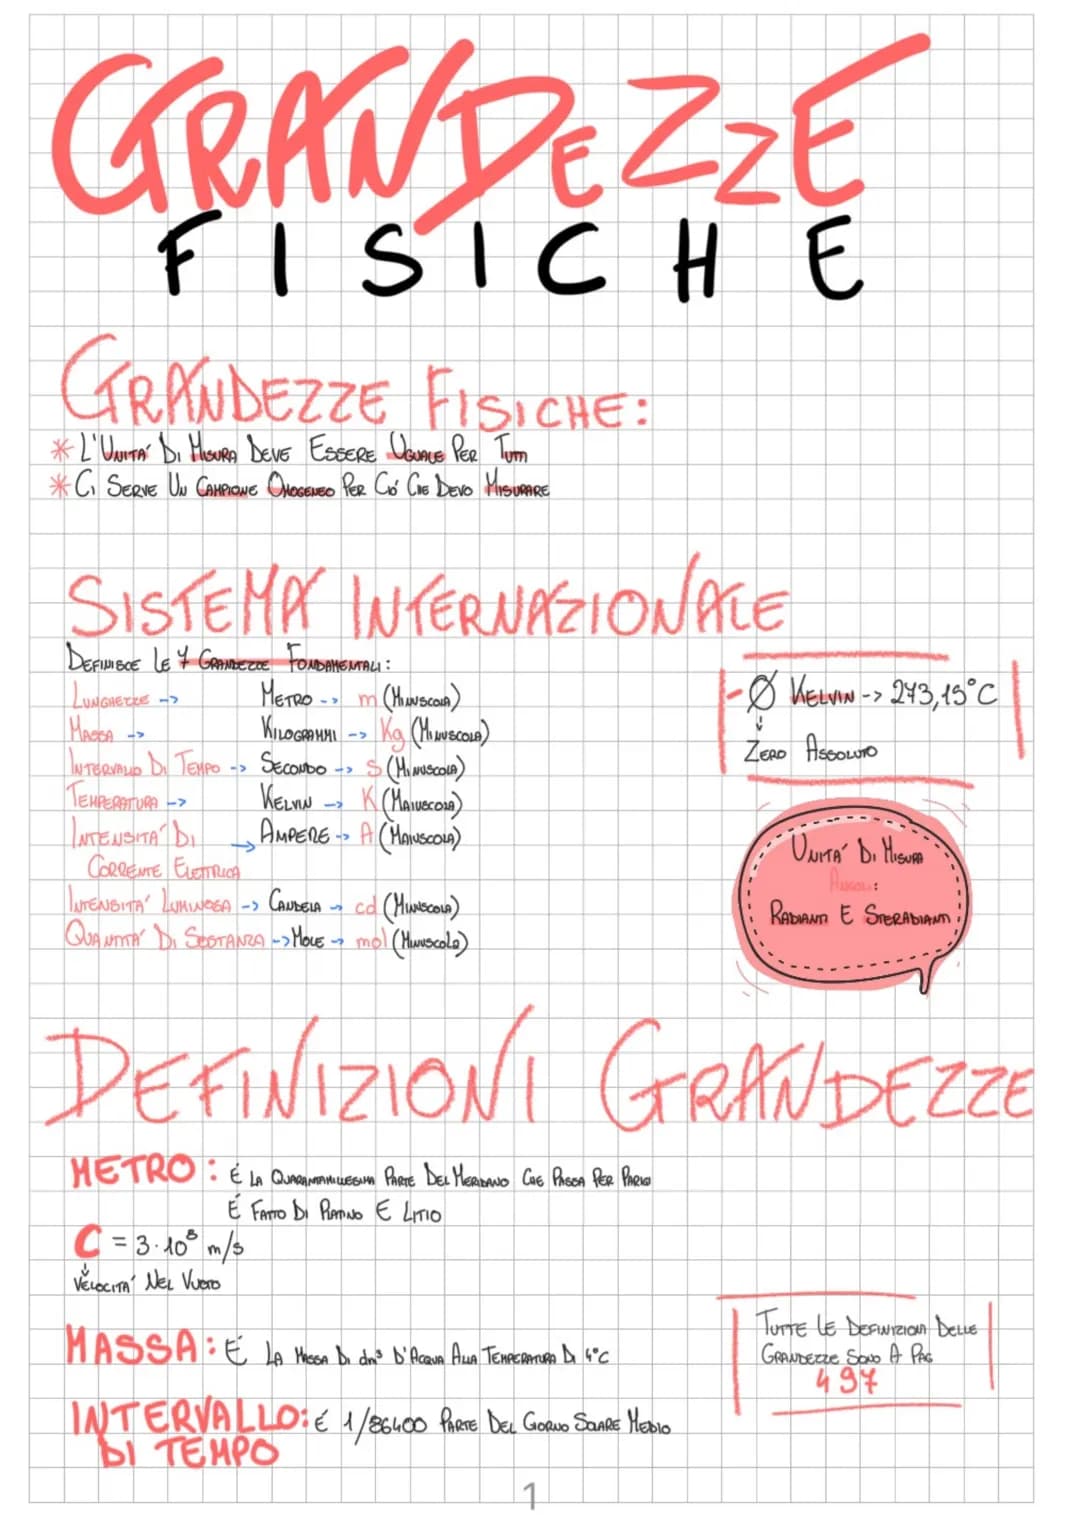 GRANDEZZE
FISICHE
GRANDEZZE FISICHE:
* L'UNITA' DI MISURA DEVE ESSERE UGUALE PER TUTTI
* CI SERVE UN CAMPIONE OMOGENEO PER CIÓ CHE DEVO MISURARE
SISTEMA INTERNAZIONALE
DEFINISCE LE 7 GRANDEZZE FONDAMENTALI:
LUNGHEZZE -> METRO -> m (MINUSCOLA)
MASSA -> KILOGRAMMI -> Kg (MINUSCOLA)
INTERVALLO DI TEMPO -> SECONDO -> S (MINUSCOLA)
TEMPERATURA -> KELVIN -> K (MAIUSCOLA)
INTENSITA' DI CORRENTE ELETTRICA -> AMPERE -> A (MAIUSCOLA)
INTENSITA' LUMINOSA -> CANDELA -> cd (MINUSCOLA)
QUANTITA' DI SOSTANZA -> MOLE -> mol (MINUSCOLA)
- Ø KELVIN -> 273,15°C
↓
ZERO ASSOLUTO
UNITA' DI MISURA
ANGOLI:
RADIANTI E STERADIANTI
DEFINIZIONI GRANDEZZE
METRO: É LA QUARANTAMILLESIMA PARTE DEL MERIDIANO CHE PASSA PER PARIGI
É FATTO DI PLATINO E LITIO
C = 3·10⁸ m/s
↓
VELOCITA' NEL VUOTO
MASSA: É LA MASSA DI dm³ D'ACQUA ALLA TEMPERATURA DI 4°C
TUTTE LE DEFINIZIONI DELLE
GRANDEZZE SONO A PAG
497
INTERVALLO: É 1/86400 PARTE DEL GIORNO SOLARE MEDIO
DI TEMPO
1